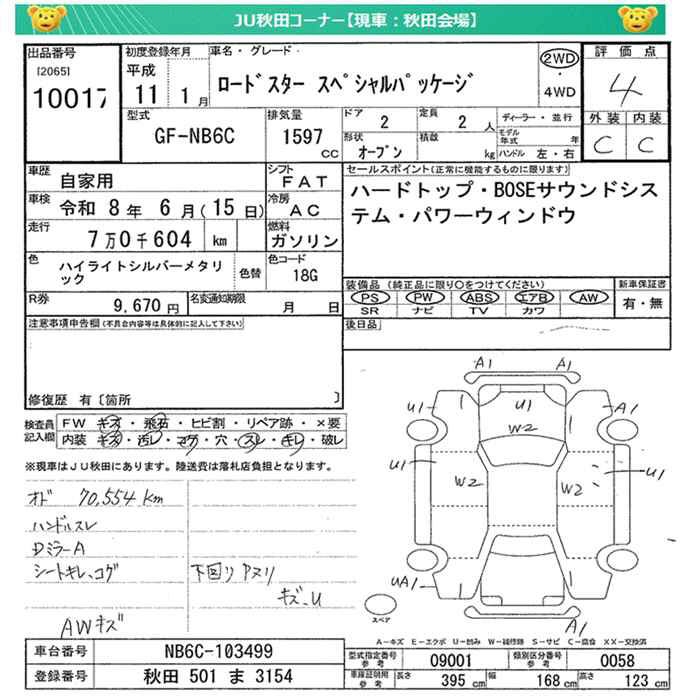 JU秋田コーナー【現車：秋田会場】
出品番号
[2065]
10017
初度登録年月
平成
11 1月
車名・グレード
ロードスター スペシャルパッケージ
2WD
・
4WD
評価点
4
外装 内装
C C
型式
GF-NB6C
排気量
1597
cc
ドア
2
定員
2人
形状
オープン
積載
kg
ディーラー・並行
モデル年式 年
ハンドル 左・右
車歴
自家用
シフト
FAT
車検
令和 8年 6月(15日)
冷房
AC
走行
7万0千604 km
燃料
ガソリン
色
ハイライトシルバーメタリック
色替
色コード
18G
R券
9,670円
名変通知期限
月 日
セールスポイント(正常に機能するものに限ります)
ハードトップ・BOSEサウンドシス
テム・パワーウィンドウ
装備品(純正品に限り○をつけてください)
PS PW ABS エアB AW
SR ナビ TV カワ
新車保証書
有・無
後日品
注意事項申告欄(不具合内容等は具体的に記入して下さい)
修復歴 有〔箇所 〕
検査員記入欄
FW キズ・飛石・ヒビ割・リペア跡・×要
内装 キズ・汚レ・コゲ・穴・スレ・キレ・破レ
※現車はJU秋田にあります。陸送費は落札店負担となります。
オド 70,554km
ハンドルスレ
DミラーA
シートキレ、コゲ
下回り アヌリ
キズ、U
AWキズ
A1 A1
U1 U1 A1
W2
U1 U1
W2 W2
UA1
A1
スペア
A－キズ E－エクボ U－凹み W－補修跡 S－サビ C－腐食 XX－交換済
車台番号
NB6C-103499
登録番号
秋田 501 ま 3154
型式指定番号
参考
09001
類別区分番号
参考
0058
車庫証明用
参考
長さ
395 cm
幅
168 cm
高さ
123 cm